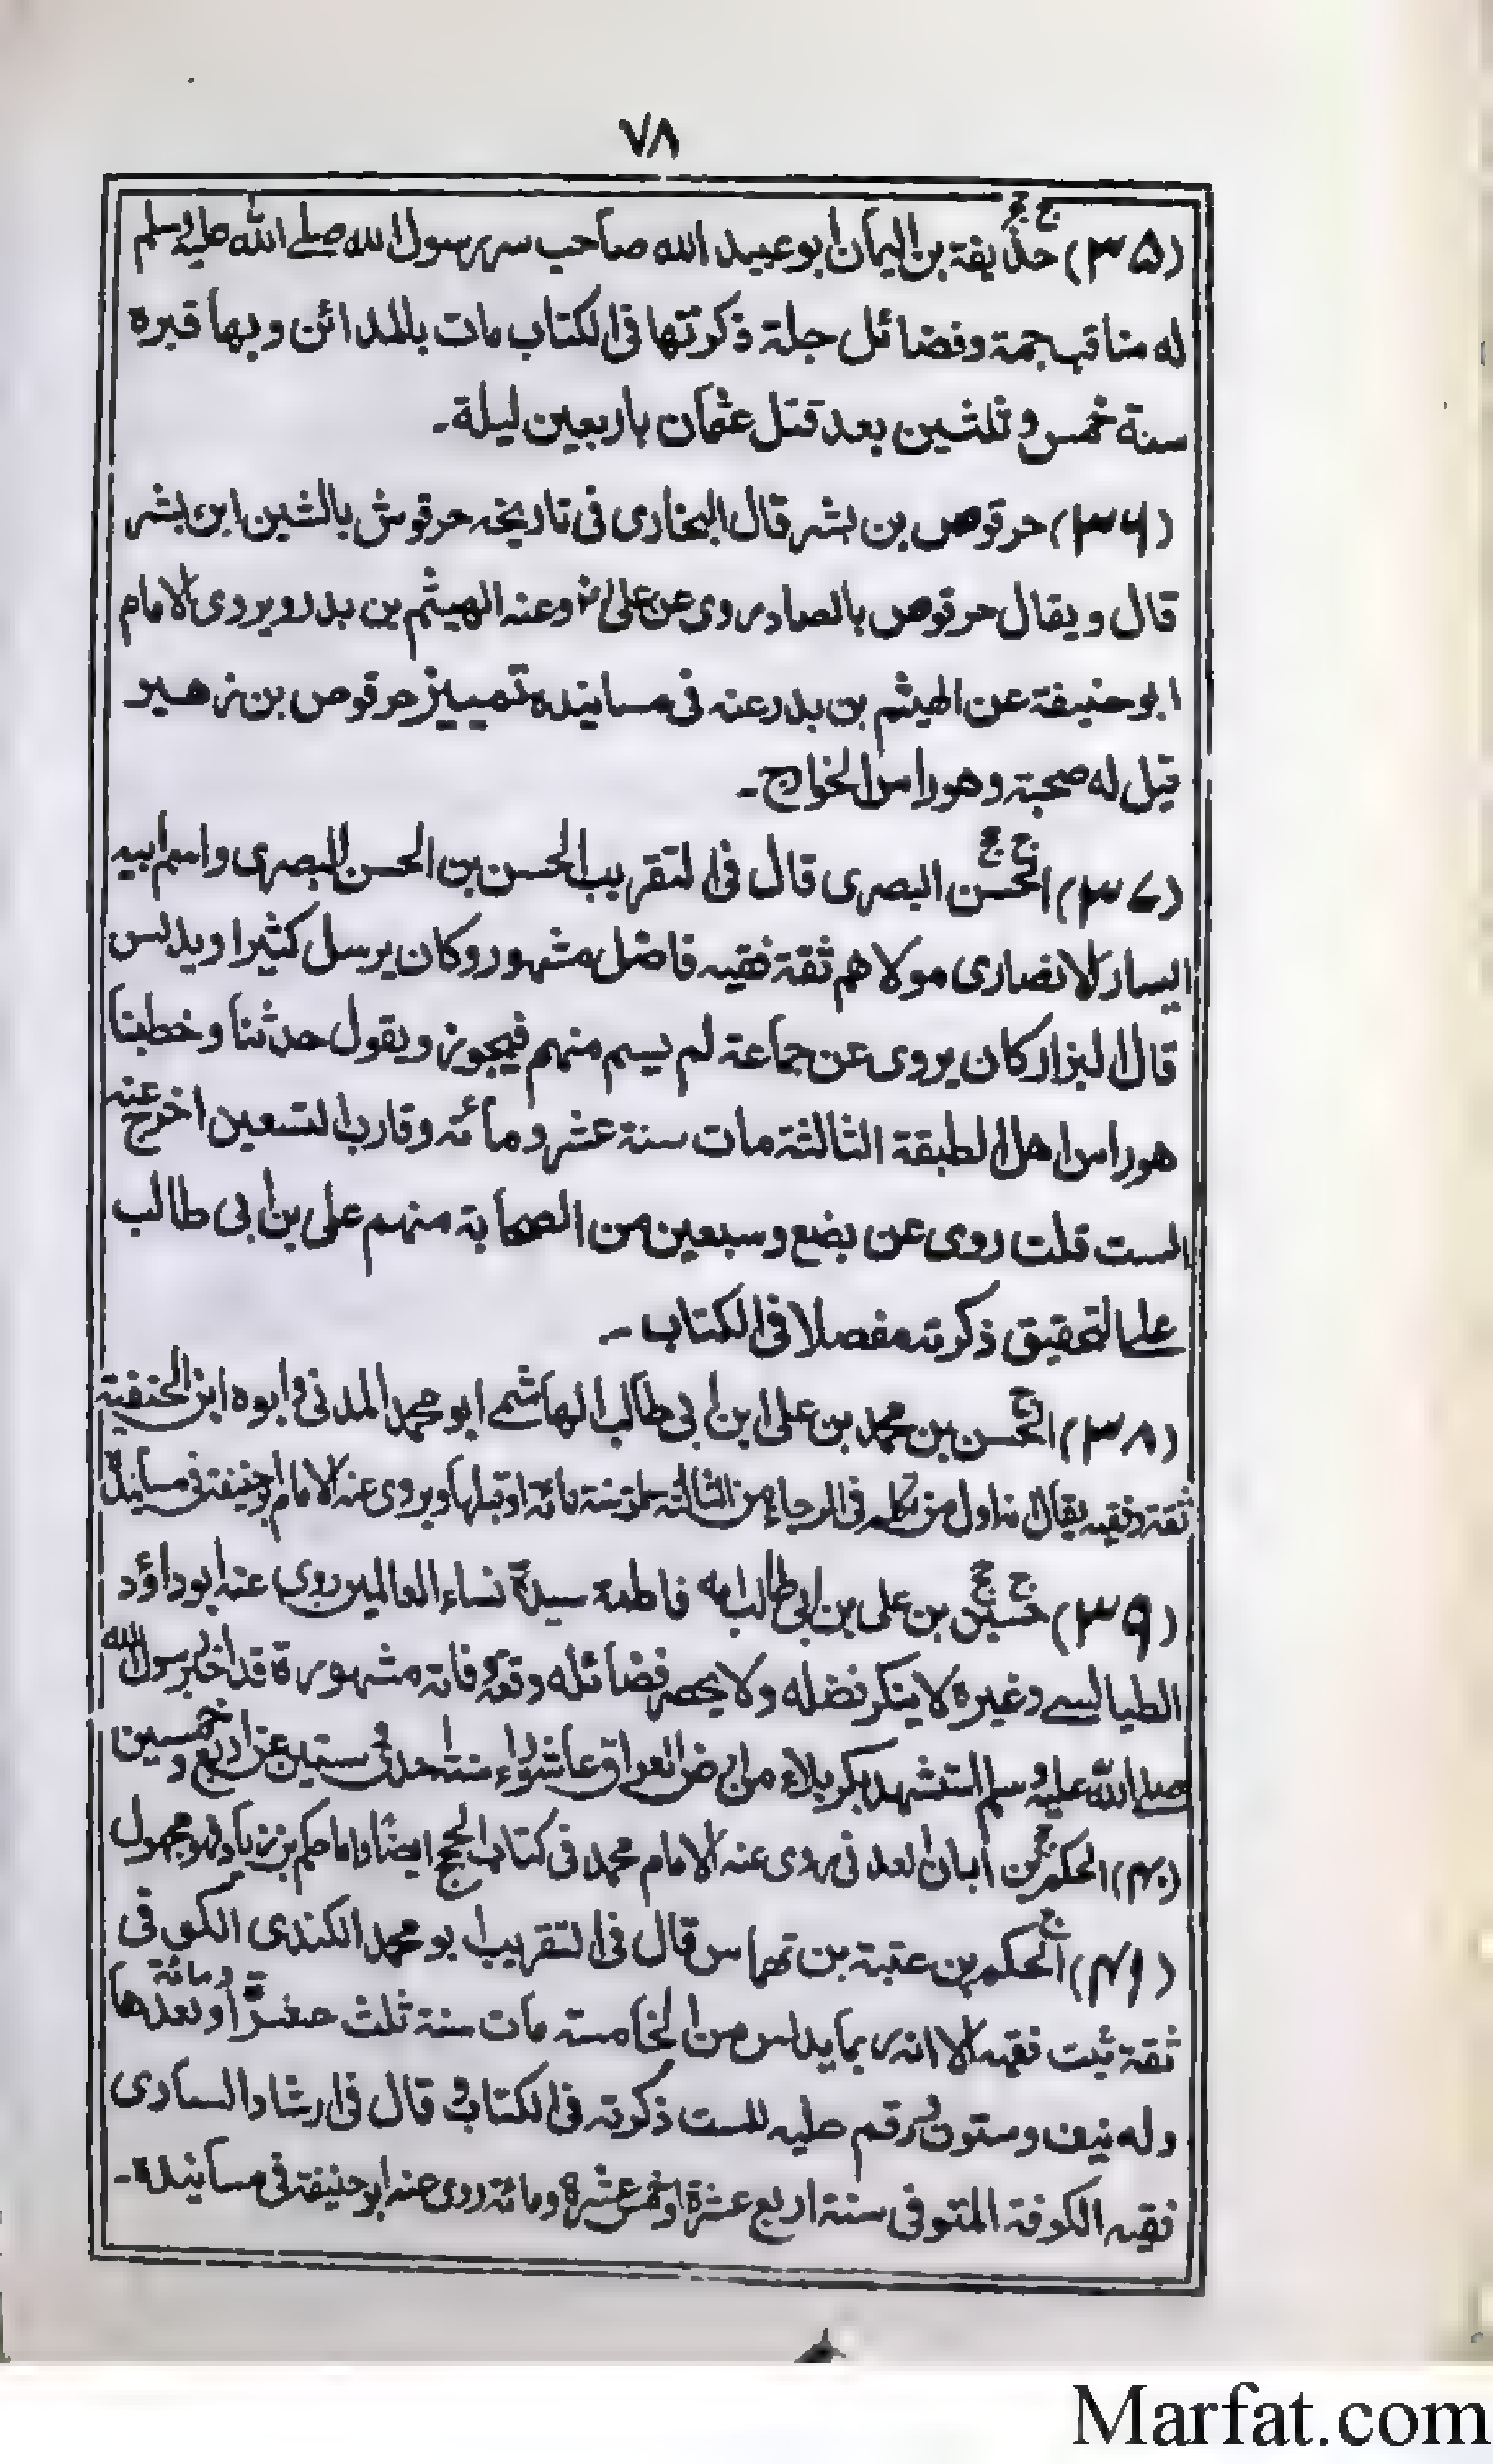 ٧٨
(٣٥) حذيفة بن اليمان ابو عبيد الله صاحب سر رسول الله صلے الله عليه وسلم
له مناقب جمة وفضائل جلة ذكرتها فى الكتاب مات بالمدائن وبها قبره
سنة خمس وثلثين بعد قتل عثمان باربعين ليلة۔
(٣٦) حرقوص بن بشر قال البخارى فى تاريخه حرقوش بالشين ابن بشر
قال ويقال حرقوص بالصاد روى عن على رض وعنه الهيثم بن بدر ويروى الامام
ابو حنيفة عن الهيثم بن بدر عنه فى مسانيده تمييز حرقوص بن زهير
قيل له صحبة وهو راس الخوارج۔
(٣٧) الحسن البصرى قال فى التقريب الحسن بن الحسن البصرى واسم ابيه
اليسار الانصارى مولاهم ثقة فقيه فاضل مشهور وكان يرسل كثيرا ويدلس
قال البزار كان يروى عن جماعة لم يسم منهم فيجوز ويقول حدثنا وخطبنا
هو راس اهل الطبقة الثالثة مات سنة عشر ومائة وقارب التسعين اخرج عنه
الست قلت روى عن بضع وسبعين من الصحابة منهم على بن ابى طالب
علے التحقيق ذكرته مفصلا فى الكتاب ۔
(٣٨) الحسن بن محمد بن على ابن ابى طالب الهاشمے ابو محمد المدنى وابوه ابن الحنفية
ثقة وفقيه يقال انه اول من تكلم فى الارجاء من الثالثة مات سنة مائة او قبلها ويروى عنه الامام ابو حنيفة فى مسانيده
(٣٩) حسين بن على بن ابى طالب امه فاطمة سيدة نساء العالمين روى عنه ابو داؤد
الطيالسے وغيره لا ينكر فضله ولا يحصر فضائله وقعة وفاته مشهورة قد اخبر رسول الله
صلے الله عليه وسلم استشهد بكربلاء من ارض العراق عاشوراء سنة احدى وستين عن اربع وخمسين
(٤٠) الحكم بن ابان العدنى روى عنه الامام محمد فى كتاب الحج ايضا واما حكم بن زياد فهو مجهول
(٤١) الحكم بن عتبة بن نهاس قال فى التقريب ابو محمد الكندى الكوفى
ثقة ثبت فقيه الا انه ربما يدلس من الخامسة مات سنة ثلث عشرة ومائة او بعدها
وله نيف وستون ورقم عليه للست ذكرته فى الكتاب وقال فى ارشاد السارى
فقيه الكوفة المتوفى سنة اربع عشرة او خمس عشرة ومائة روى عنه ابو حنيفة فى مسانيده۔
Marfat.com